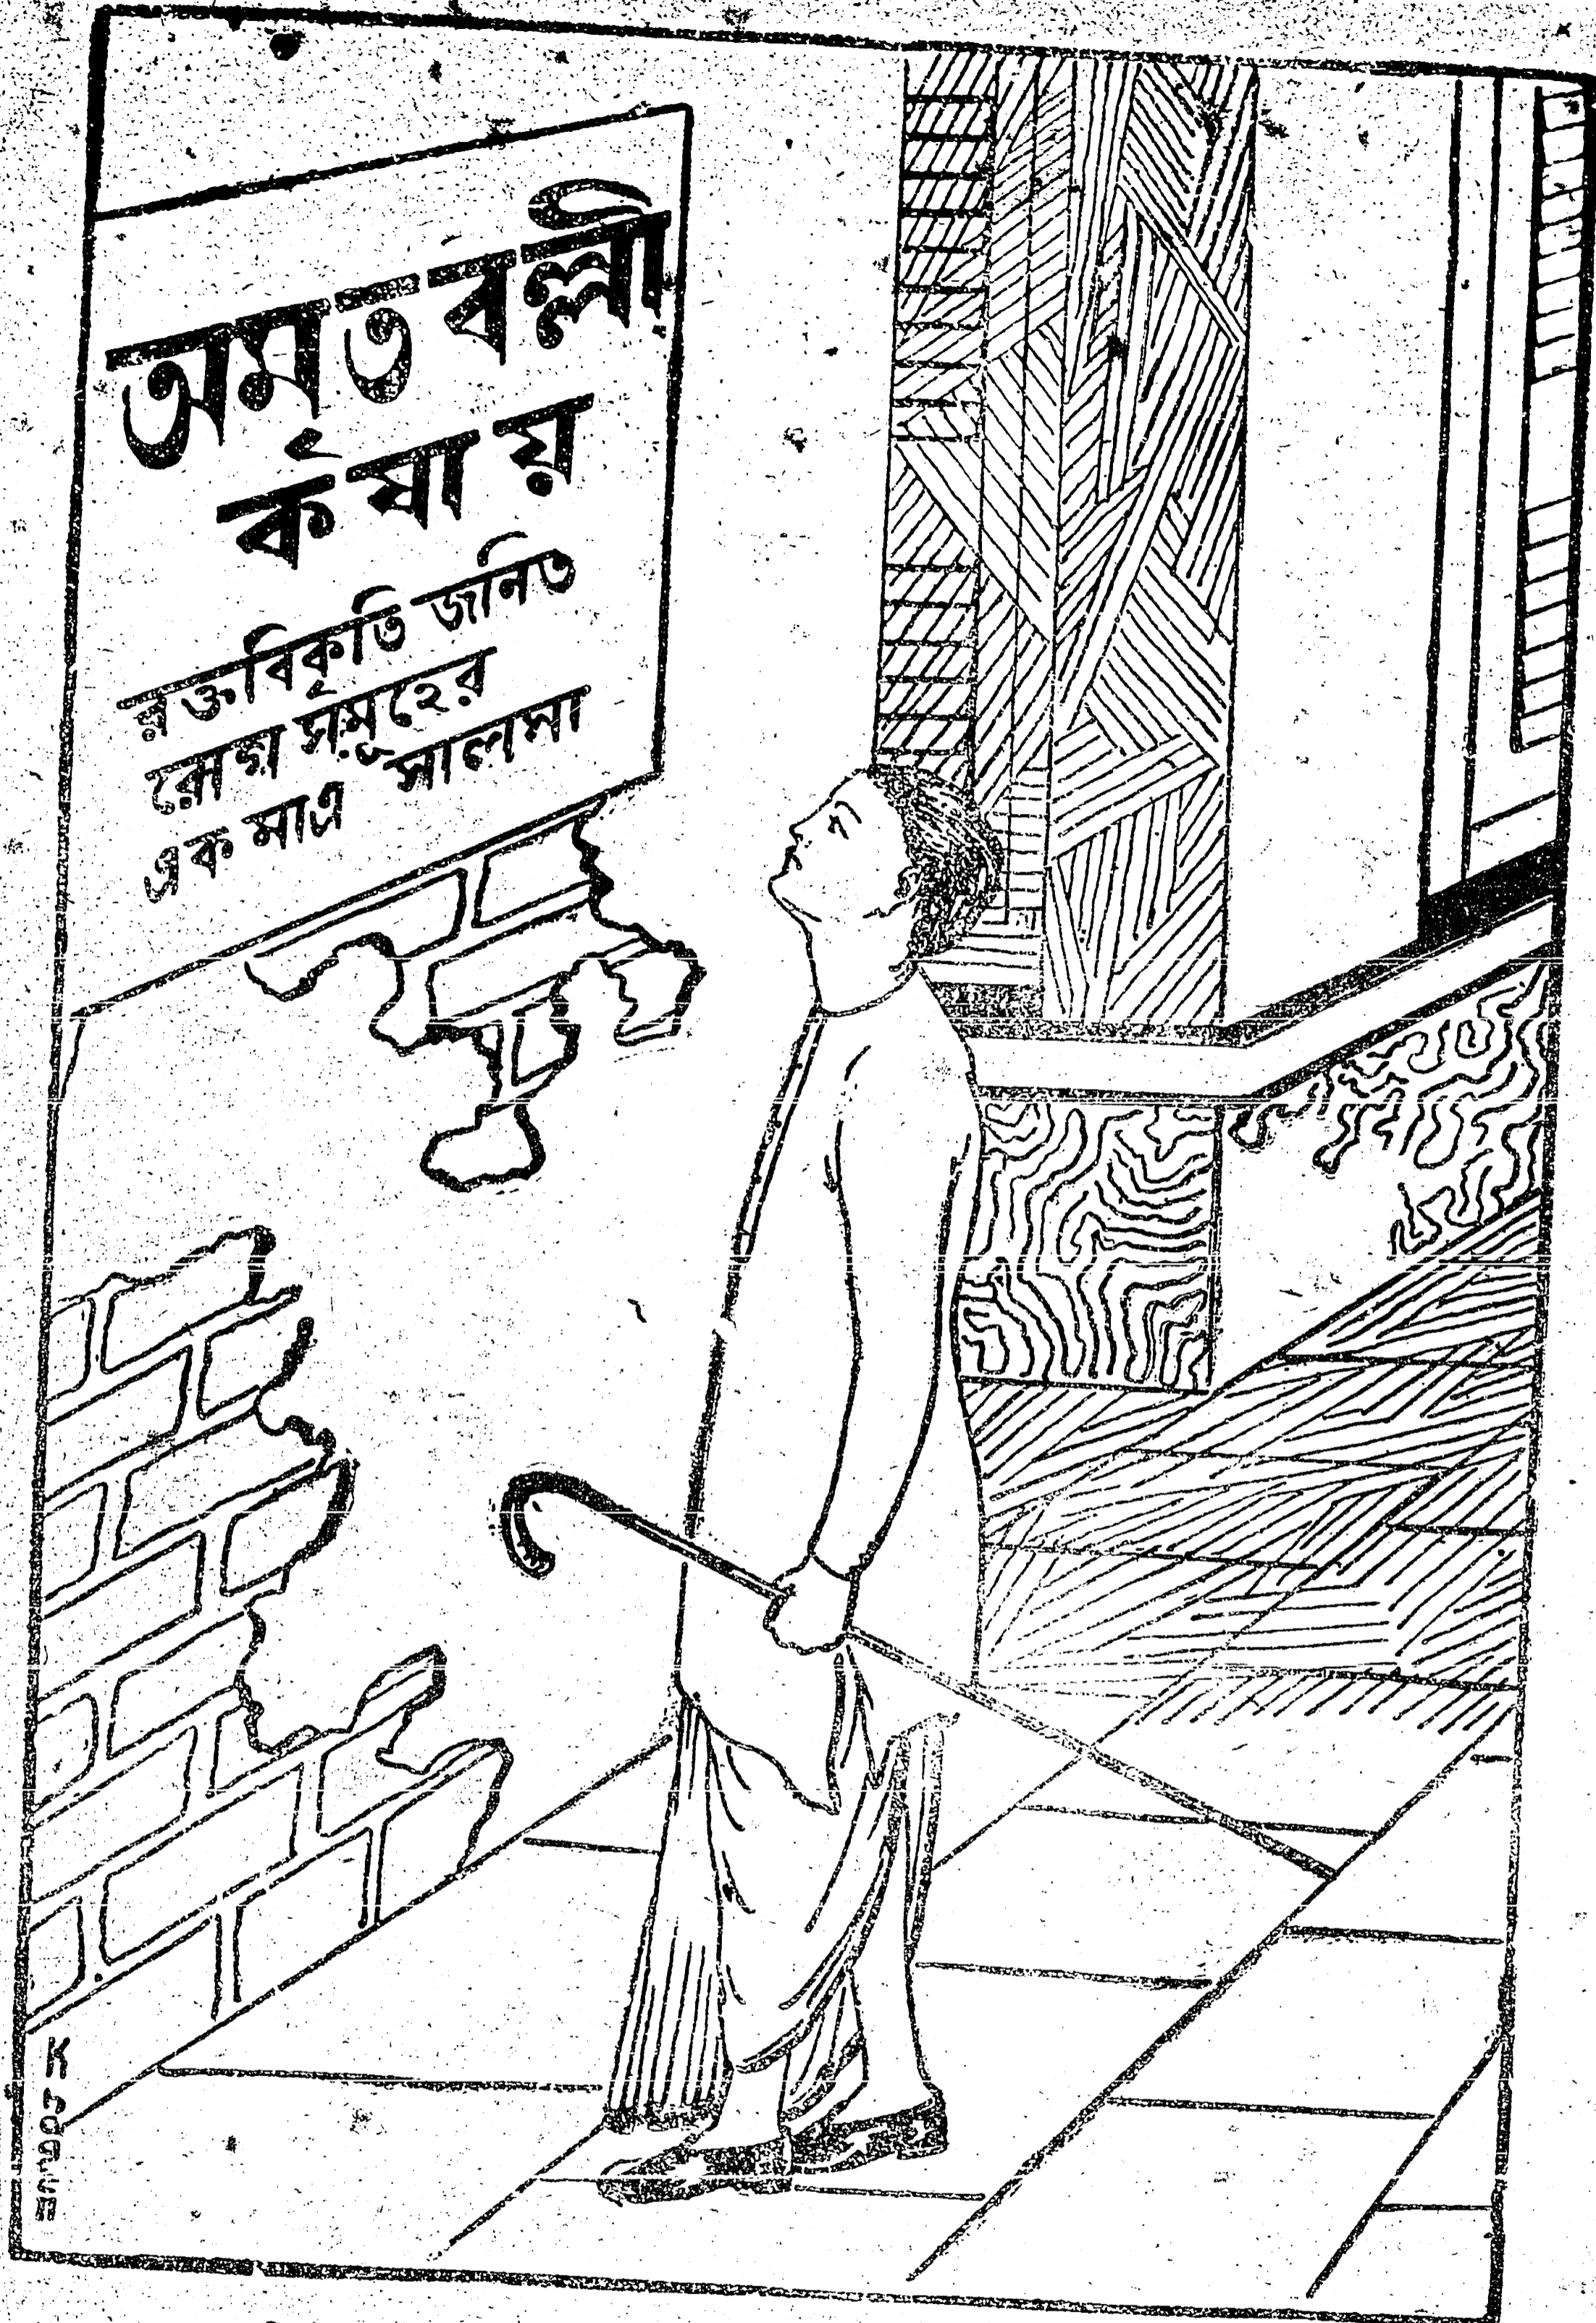 অমৃতবল্লী
কষায়
রক্তবিকৃতি জনিত
রোগ সমূহের
এক মাত্র সালসা